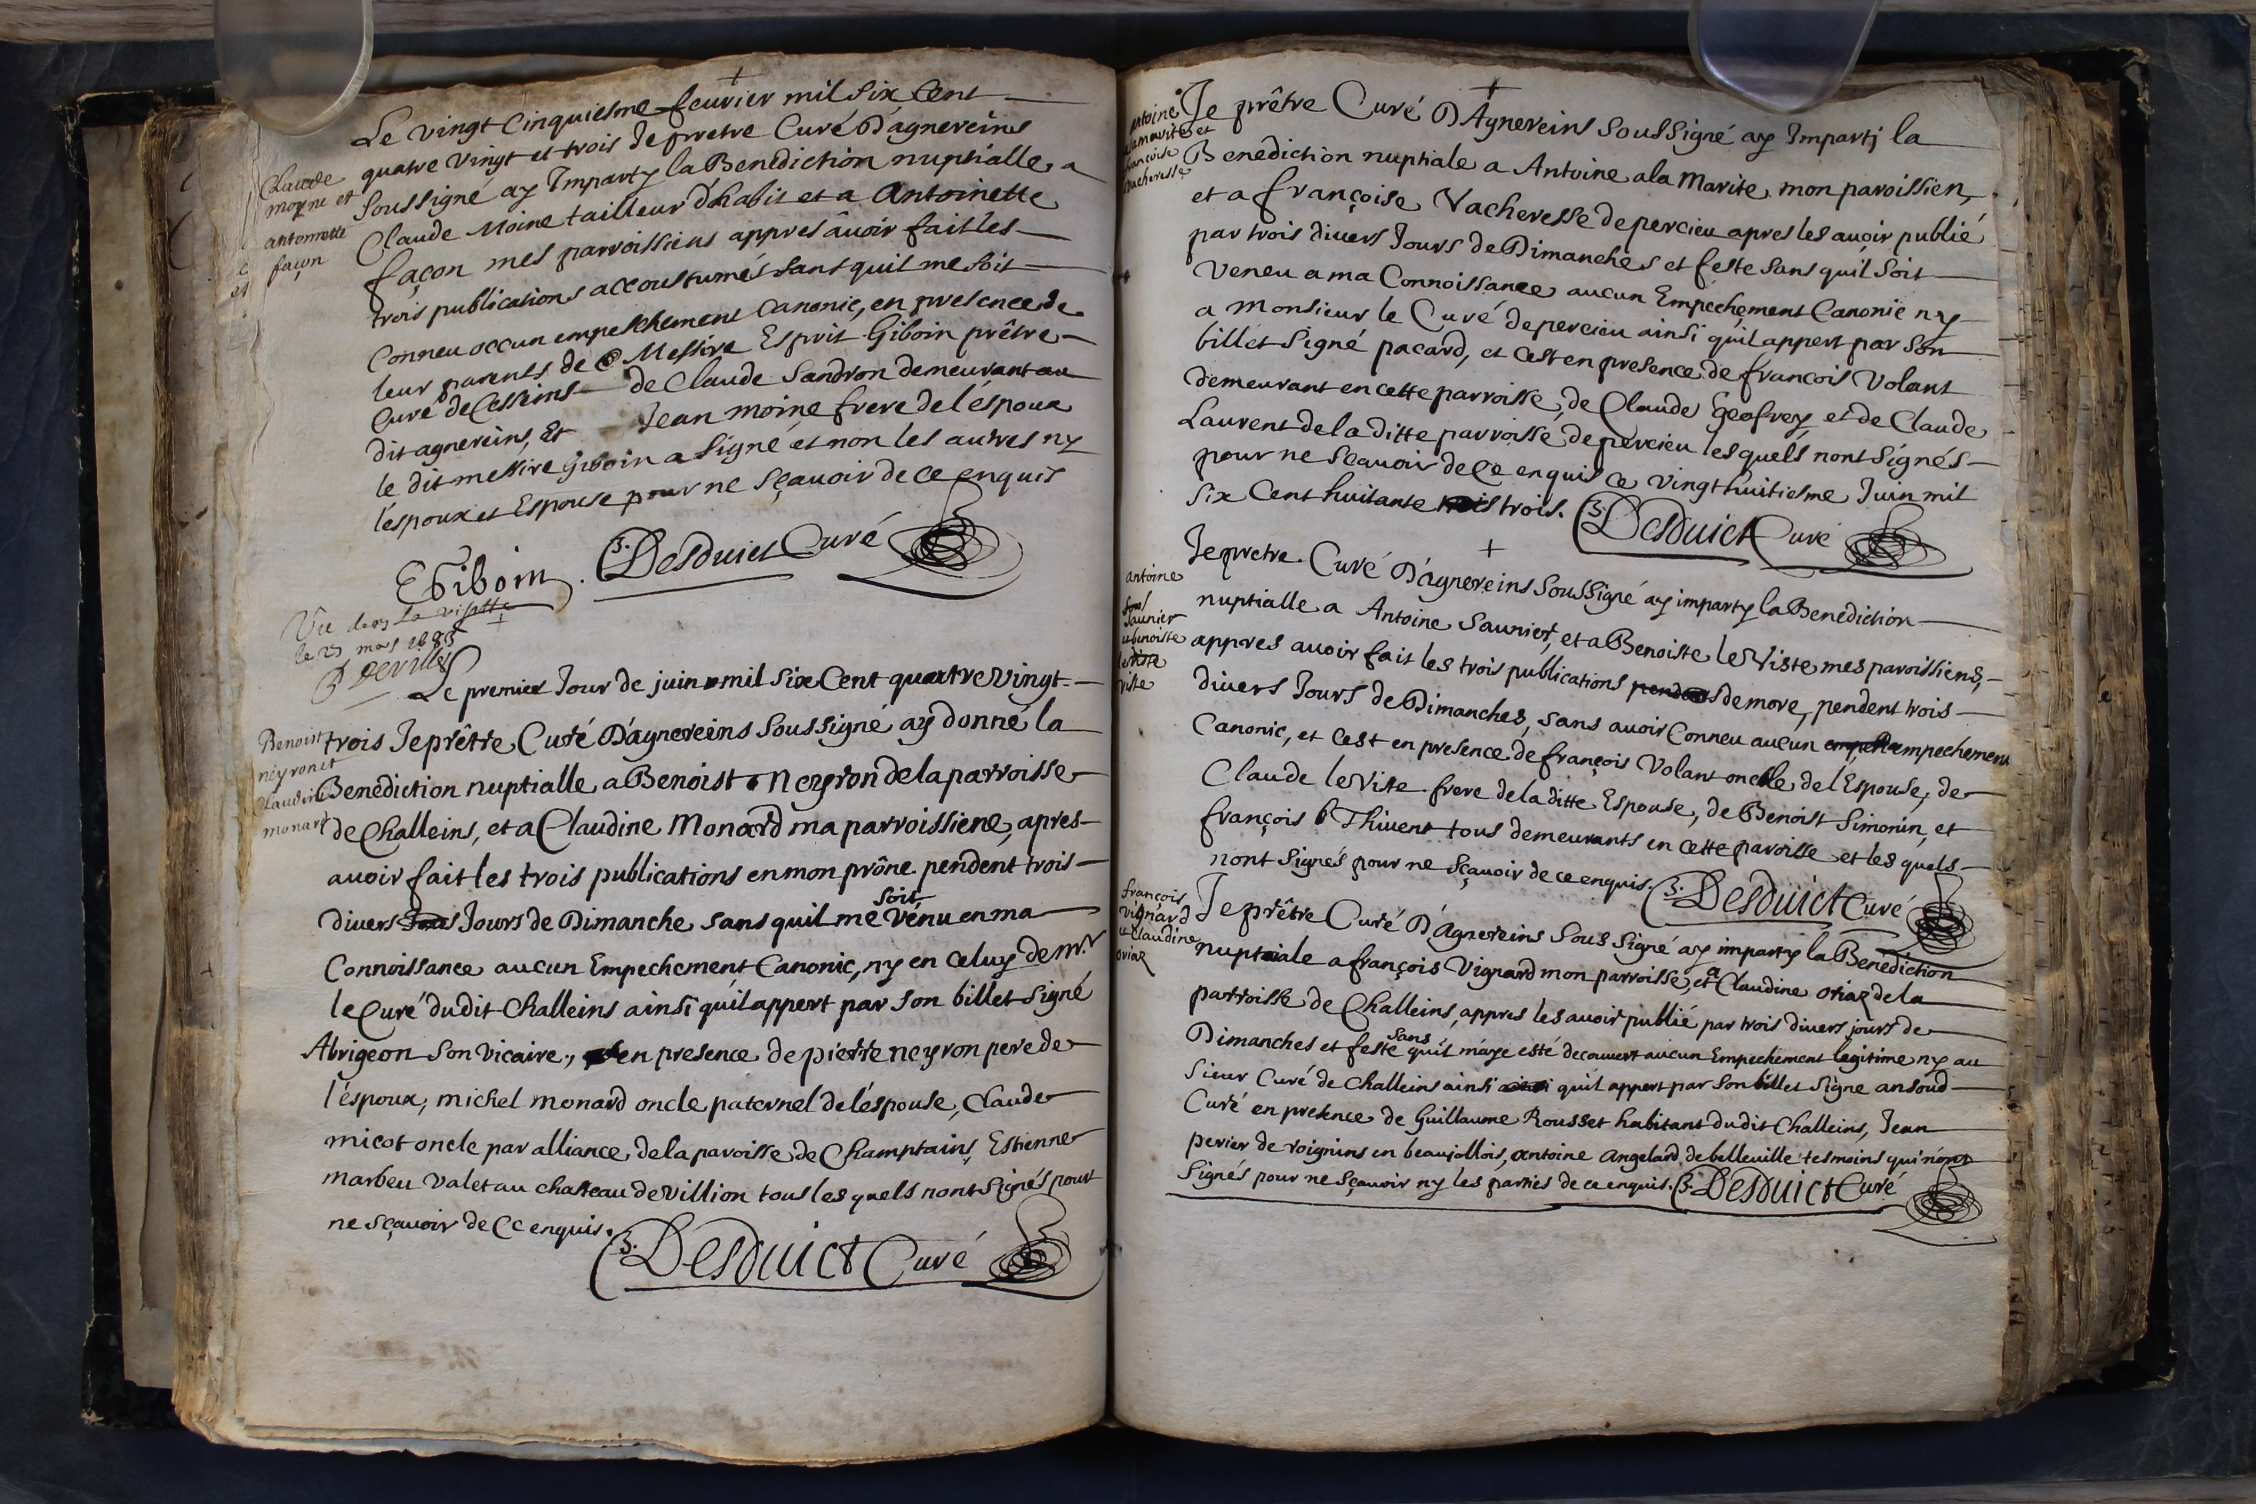 Le vingt Cinquiesme feurier mil six Cent
quatre vingt et trois Je pretre Curé D'agnereins
soussigné ay Imparty la Benediction nuptialle a
Claude Moine tailleur D'habit et a Antoinette
façon mes parroissiens appres âuoir fait les
trois publications accoustumés sans quil me soit
Conneu occun empeschement Canonic, en presence de
leur parents de Messire Esprit Giboin prêtre
Curé de Cesseins de Claude Sandron demeurant au
dit agnereins, Et Jean moine frere de l'éspoux
le dit messire Giboin a signé et non les autres ny
l'éspoux et Espouse pour ne sçauoir de ce enquis
Claude
moyne et
antoinette
façon
EGiboin. Desduict Curé
Vu la visitte
le 23 mars 1683
Deville
Le premier Jour de juin mil six Cent quatre vingt
trois Je prêtre Curé D'agnereins soussigné ay donné la
Benediction nuptialle a Benoist Neyron de la parroisse
de Challeins, et a Claudine Monard ma parroissiene, apres
auoir fait les trois publications en mon prône pendent trois
divers Jours de Dimanche sans quil me soit vénu en ma
Connoissance aucun Empechement Canonic, ny en celuy de Mr
le Curé dudit Challeins ainsi qu'il appert par son billet signé
Abrigeon son vicaire, en presence de pierre neyron pere de
l'éspoux, michel monard oncle paternel de l'éspouse, Claude
micot oncle par alliance de la paroisse de Champtains Estienne
marbeu valet au chasteau de villion tous les quels nont signés pour
ne sçauoir de Ce enquis.
Benoist
neyron et
Claudine
monard
Desduict Curé
Je prêtre Curé D'Agnereins soussigné ay Imparti la
Benediction nuptiale a Antoine ala Marite mon paroissien,
et a françoise Vacheresse de percieu apres les auoir publié
par trois diuers Jours de Dimanches et feste sans quil soit
Veneu a ma Connoissance aucun Empéchement Canonic ny
a Monsieur le Curé de percieu ainsi qu'il appert par son
billet signé pacard, et cest en presence de francois Volant
demeurant en cette parroisse, de Claude Geofrey et de Claude
Laurent de la ditte parroisse de percieu les quels nont signés
pour ne sçauoir de Ce enquis ce vingt huitiesme Juin mil
six Cent huitante trois.
Antoine
alamarite et
francoise
vacheresse
Desduict Curé
Je pretre Curé D'agnereins soussigné ay imparty la Benediction
nuptialle a Antoine saunier, et a Benoiste le Viste mes paroissiens,
appres auoir fait les trois publications de more, pendent trois
diuers Jours de Dimanches, sans auoir Conneu aucun empechement
Canonic, et cest en presence de françois Volant oncle de l'Espouse, de
Claude le Viste frere de la ditte Espouse, de Benoist Simonin, et
françois Thiuent tous demeurants en cette paroisse et les quels
nont signés pour ne sçauoir de ce enquis.
antoine
saunier
benoiste
viste
Desduict Curé
Je prêtre Curé D'Agnereins sous signé ay imparty la Benediction
nuptiale a françois Vignard mon parroisse, et a Claudine oriaz de la
parroisse de Challeins, appres les auoir publié par trois diuers jours de
Dimanches et feste sans qu'il m'aye esté decouuert aucun Empechement legitime ny au
sieur Curé de Challeins ainsi qu'il appert par son billet signe ansoud
Curé en presence de Guillaume Rousset habitant dudit Challeins, Jean
perier de roignins en beaujollois, antoine Angelard de belleuille tesmoins qui n'ont
signés pour ne sçauoir ny les parties de ce enquis.
françois
vignard
Claudine
oriaz
Desduict Curé